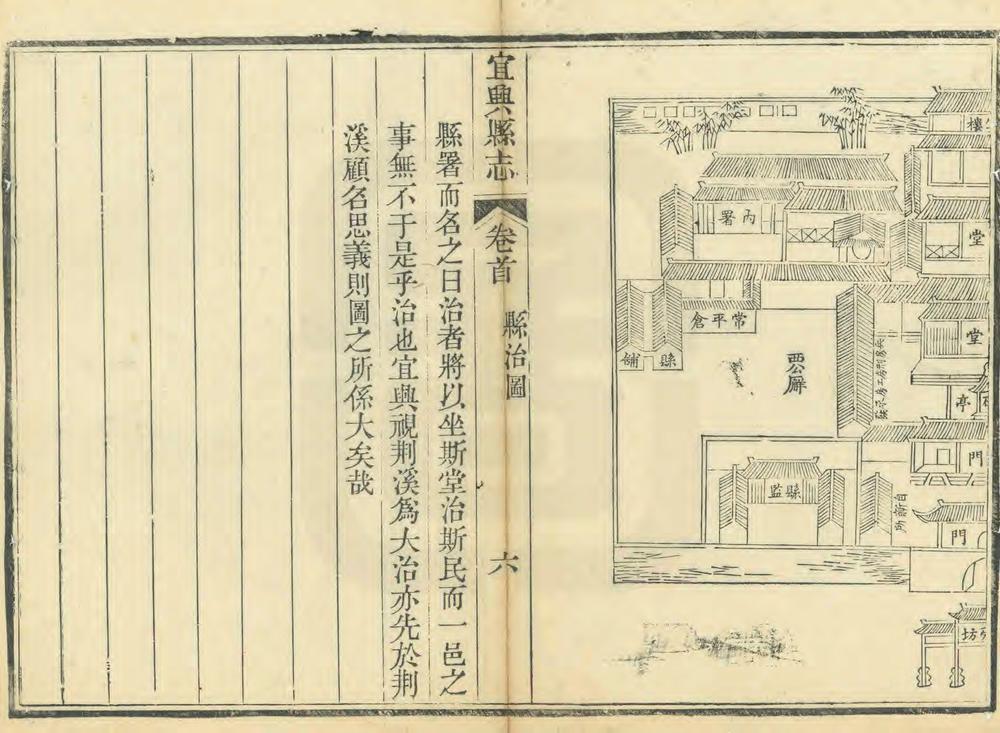 樓
堂
堂
亭
門
門
坊
內署
常平倉
縣舖
西公廨
兵房刑房工房承發
縣監
自新所
宜興縣志
卷首
縣治圖
六
縣署而名之曰治者將以坐斯堂治斯民而一邑之
事無不于是乎治也宜興視荆溪爲大治亦先於荆
溪顧名思義則圖之所係大矣哉